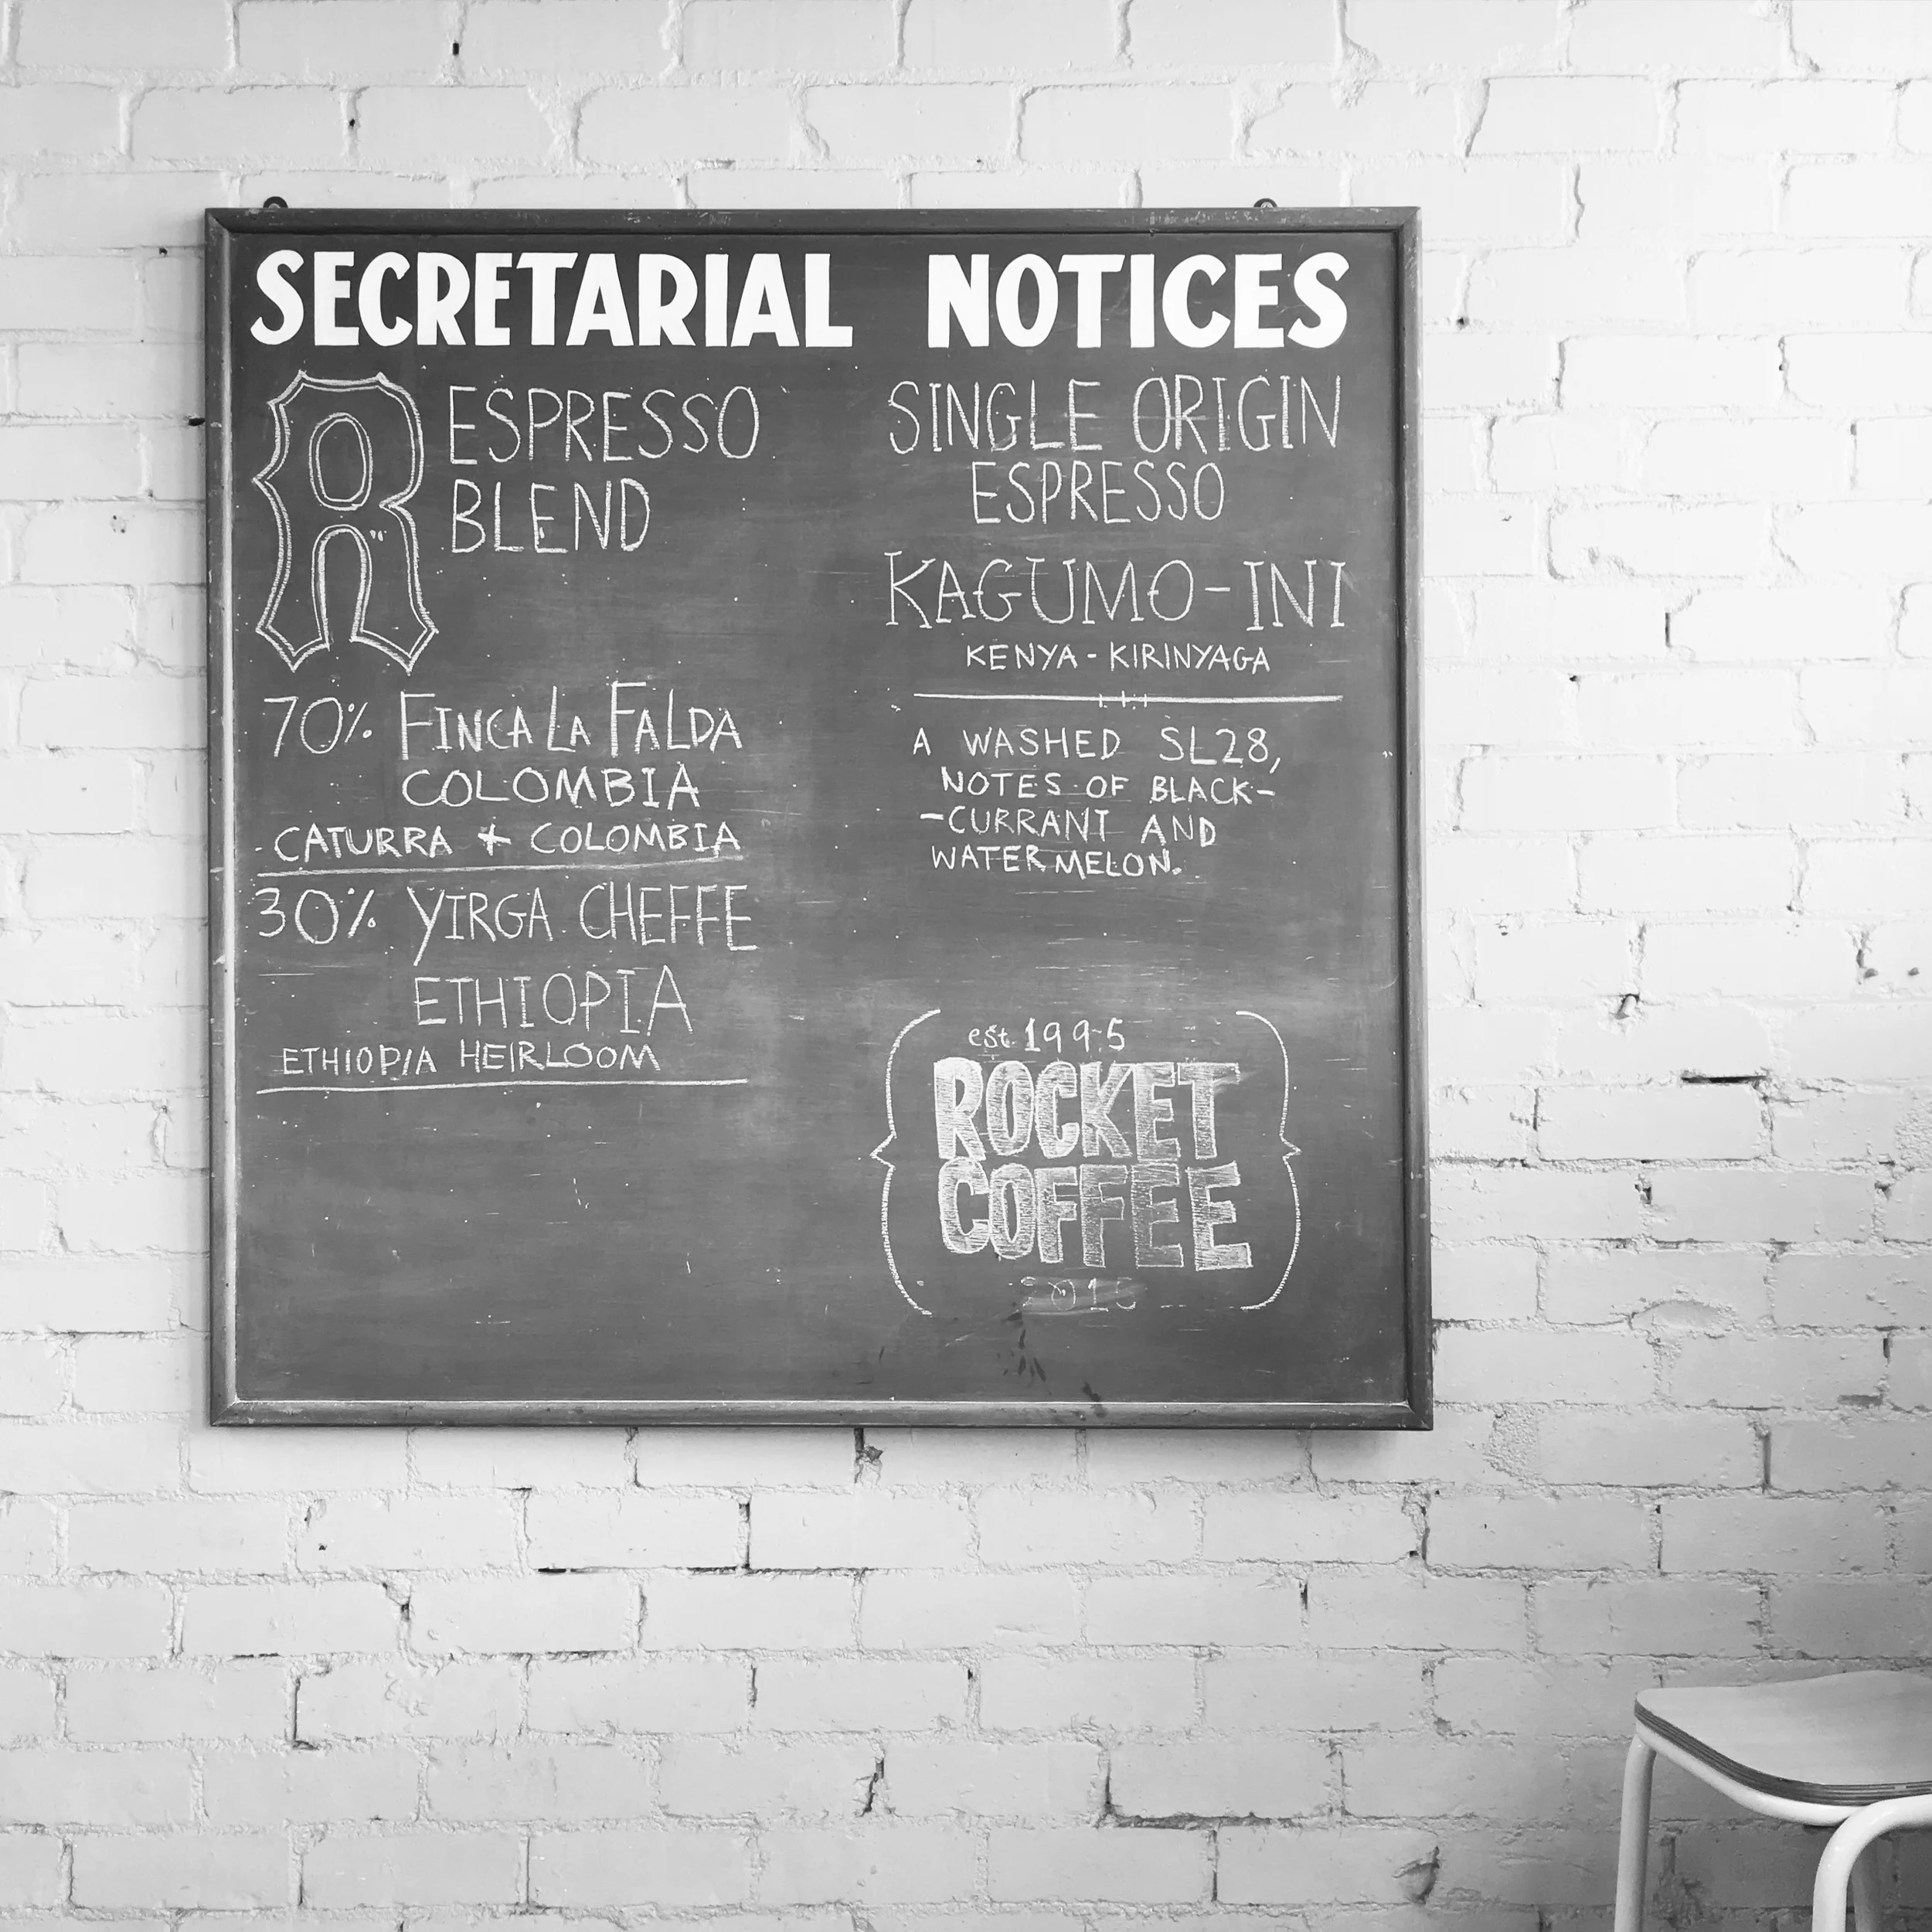 SECRETARIAL NOTICES
R ESPRESSO
BLEND
70% FINCA LA FALDA
COLOMBIA
CATURRA + COLOMBIA
30% YIRGA CHEFFE
ETHIOPIA
ETHIOPIA HEIRLOOM
SINGLE ORIGIN
ESPRESSO
KAGUMO-INI
KENYA-KIRINYAGA
A WASHED SL28,
NOTES OF BLACK-
-CURRANT AND
WATERMELON.
est. 1995
ROCKET
COFFEE